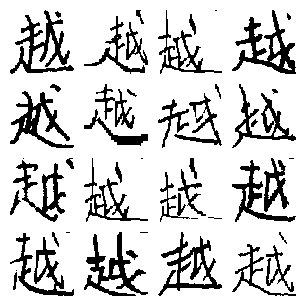 越越越越
越越越越
越越越越
越越越越